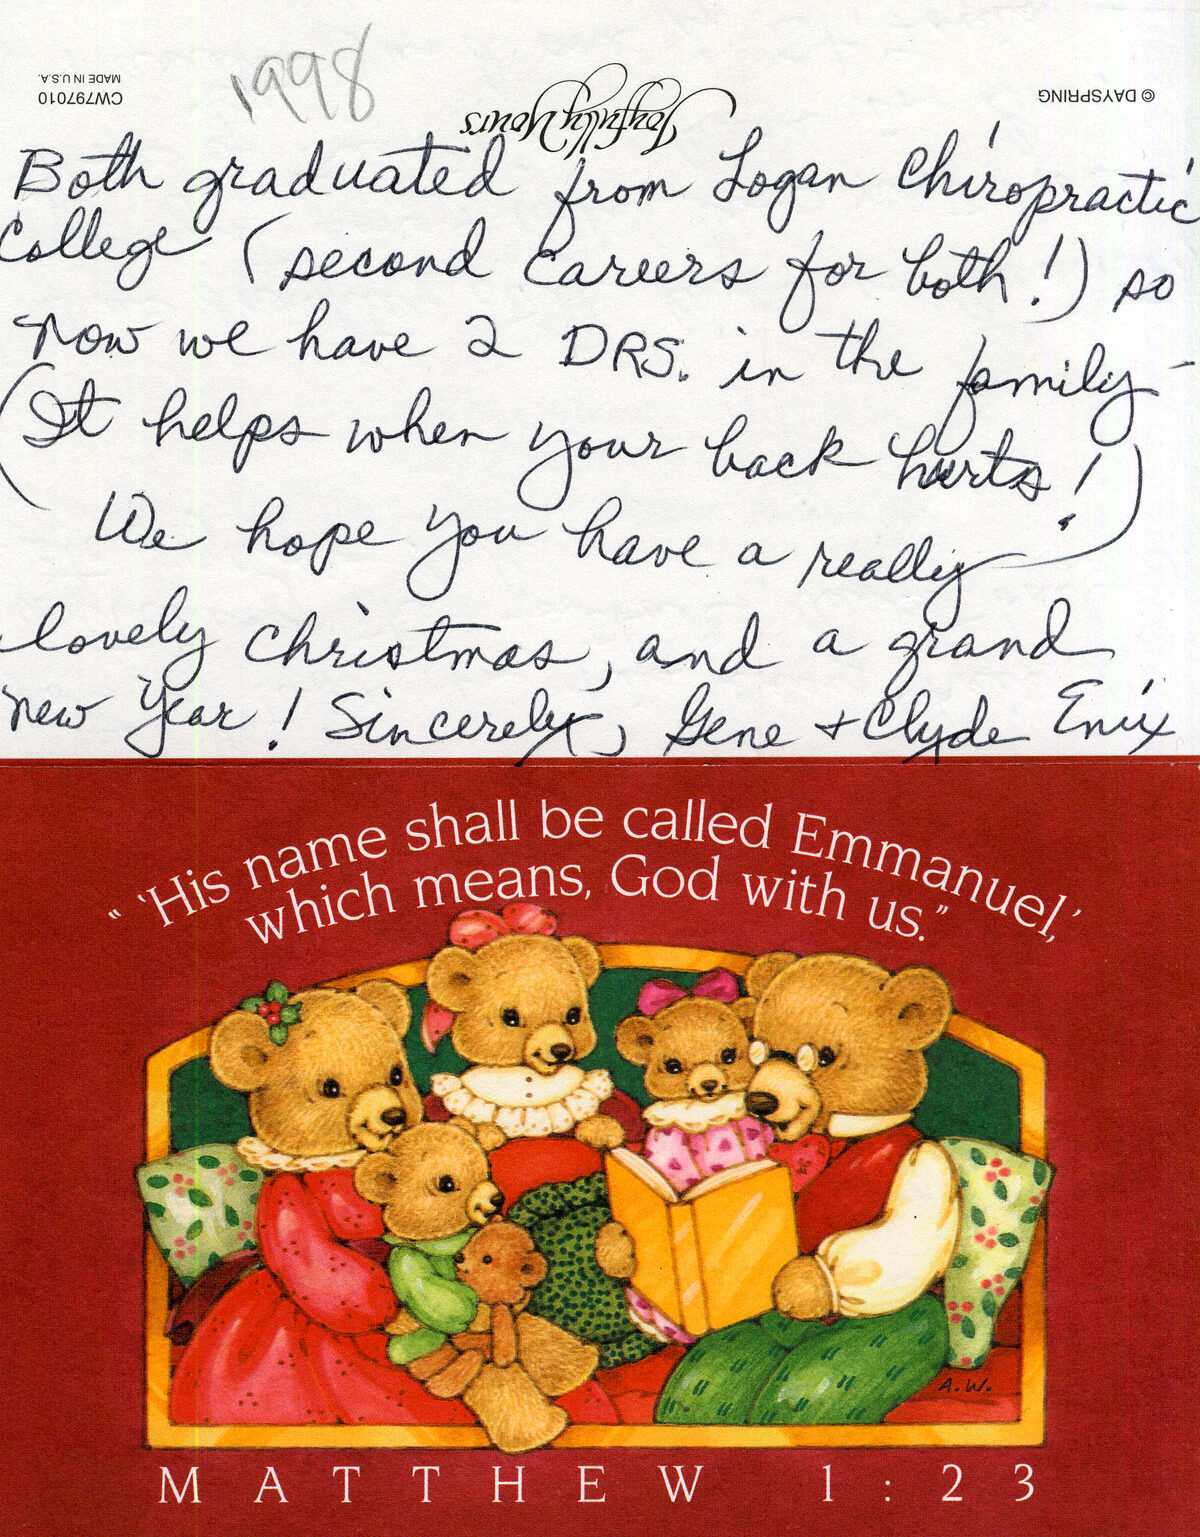 1998
CW797010
MADE IN U.S.A.
Joyfully Yours
© DAYSPRING
Both graduated from Logan Chiropractic
College (second careers for both!) so
now we have 2 DRS. in the family -
(It helps when your back hurts!)
We hope you have a really
lovely Christmas, and a grand
new Year! Sincerely, Gene + Clyde Enix
“‘His name shall be called Emmanuel,’
which means, God with us.”
A.W.
MATTHEW 1:23